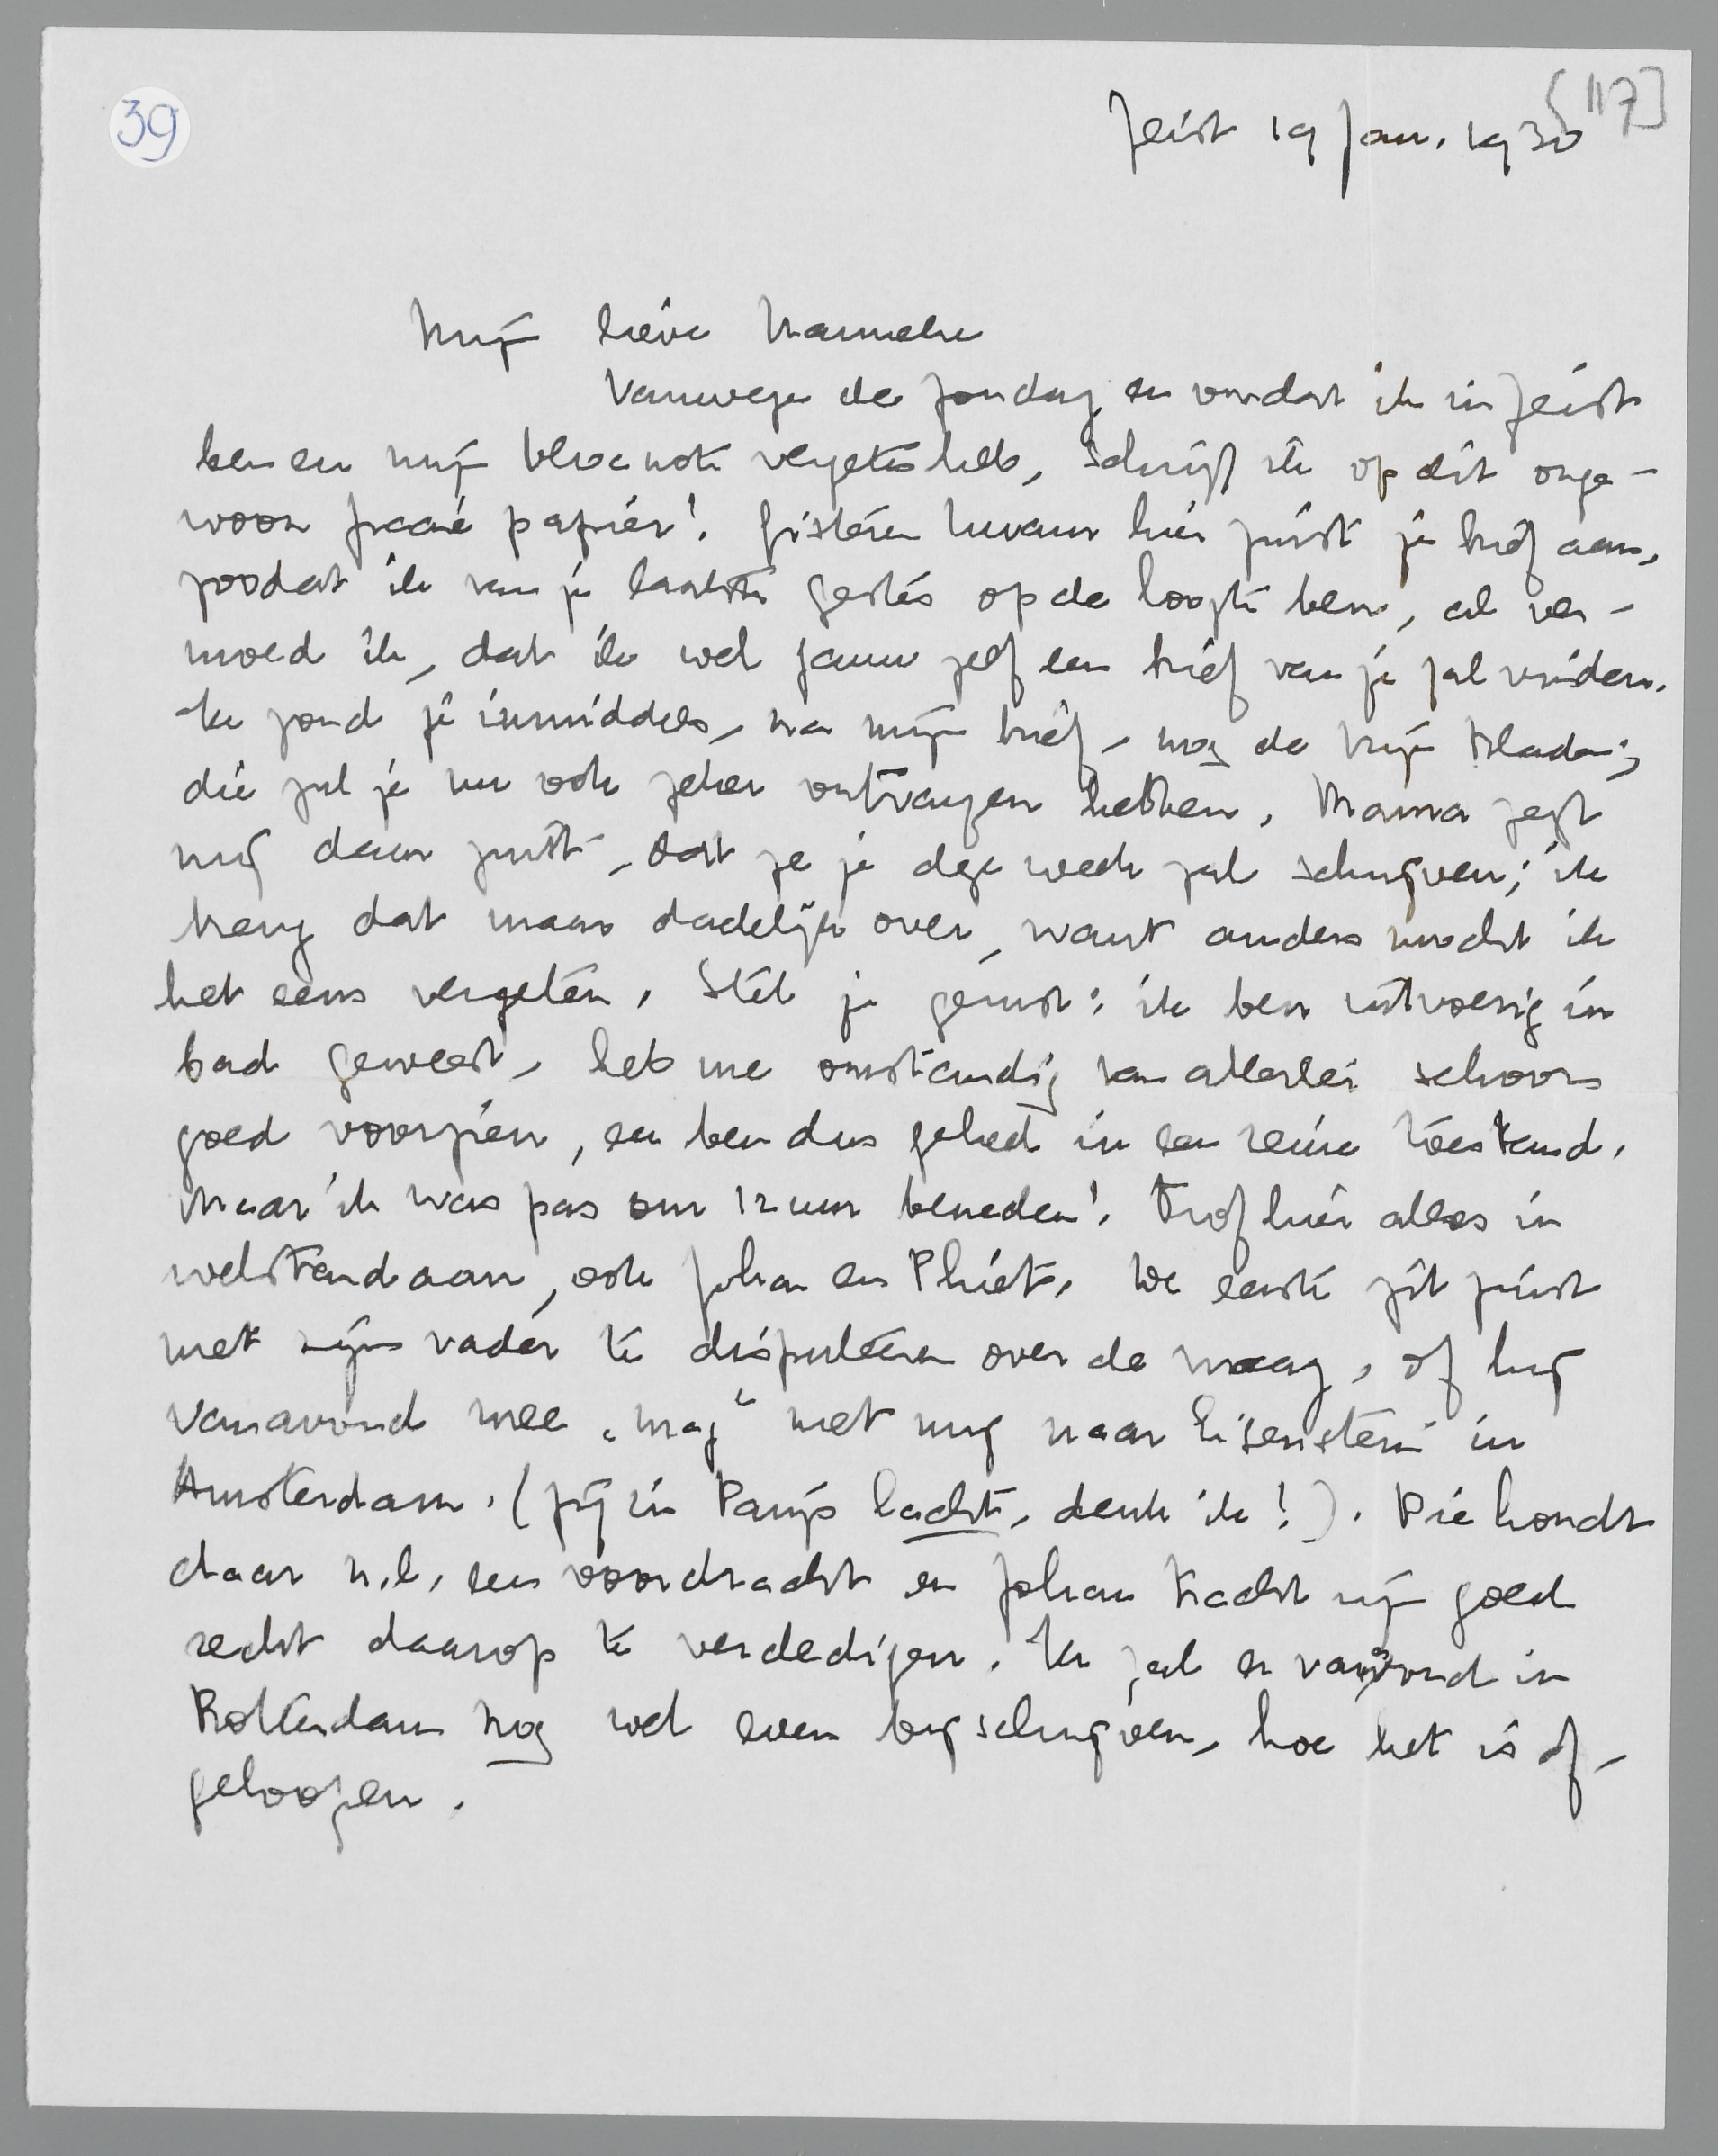 39
[117]
Zeist 19 Jan. 1930
Mijn lieve Hanneke
Vanwege de Zondag en omdat ik in Zeist
ben en mijn blocnote vergeten heb, schrijf ik op dit onge-
woon fraaie papier! Gisteren kwam hier juist je brief aan,
zoodat ik van je laatste gestes op de hoogte ben, al ver-
moed ik, dat ik wel gauw zelf een brief van je zal vinden.
Ik zond je inmiddels, na mijn brief, nog de Vrije Bladen;
die zul je nu ook zeker ontvangen hebben. Mama zegt
mij daar juist, dat ze je deze week zal schrijven; ik
breng dat maar dadelijk over, want anders mocht ik
het eens vergeten. Stel je gerust: ik ben uitvoerig in
bad geweest, heb me omstandig van allerlei schoon
goed voorzien, en ben dus geheel in een reine toestand.
Maar ik was pas om 12 uur beneden! Trof hier alles in
welstand aan, ook Johan en Phiet. De eerste zit juist
met zijn vader te disputeeren over de vraag, of hij
vanavond mee „mag" met mij naar Eisenstein in
Amsterdam. (Jij in Parijs lacht, denk ik!). Die houdt
daar n.l. een voordracht en Johan tracht zijn goed
recht daarop te verdedigen. Ik zal er vanavond in
Rotterdam nog wel even bijschrijven, hoe het is af-
geloopen.